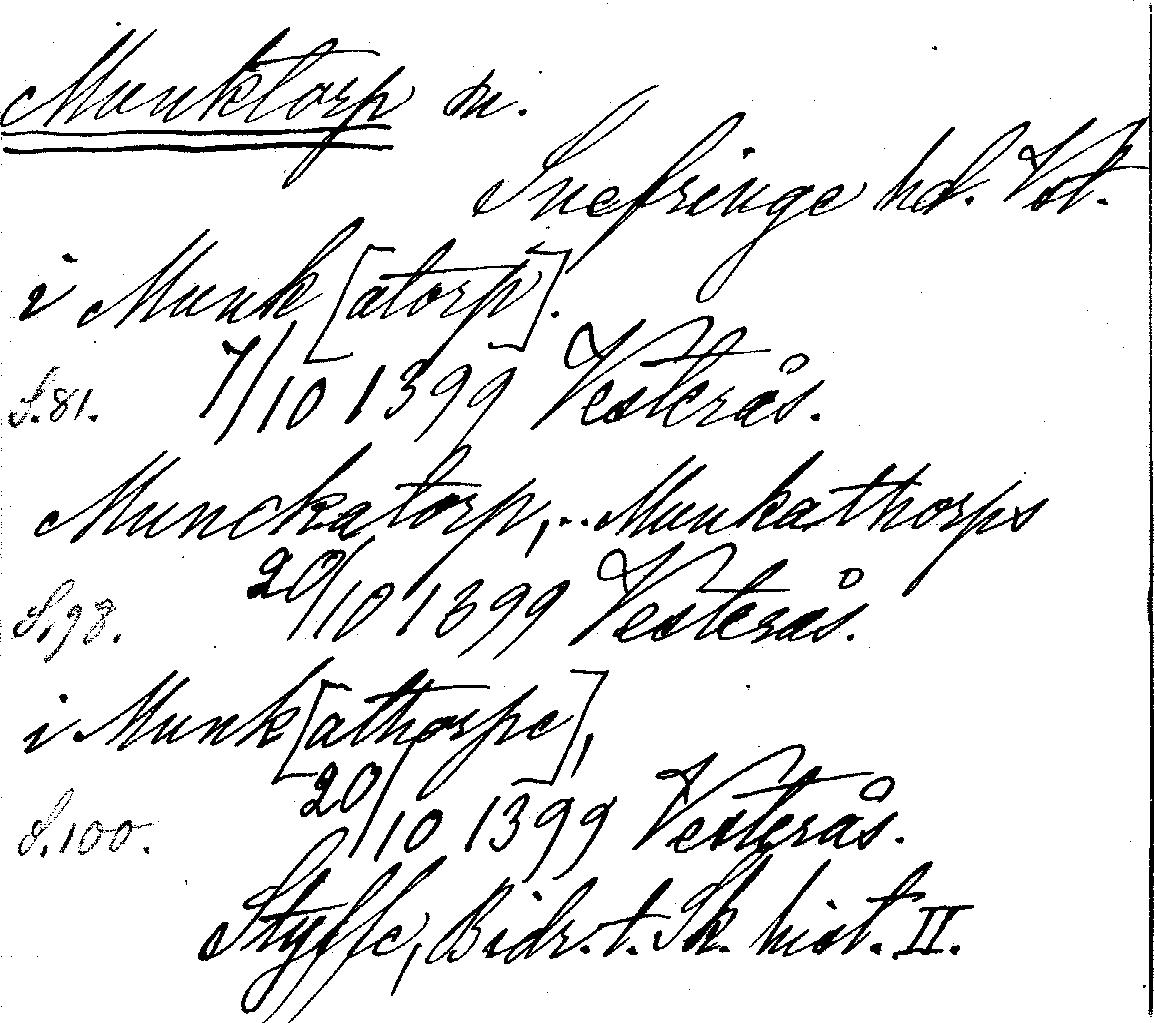 Munktorp sn.
Snefringe hd. Vstm.
i Munk[atorp].
S. 81. 7/10 1399 Vesterås.
Munckatorp, .. Munkathorps
S. 98. 20/10 1399 Vesterås.
i Munk[athorpe],
S. 100. 20/10 1399 Vesterås.
Styffe, Bidr. t. Sk. hist. II.